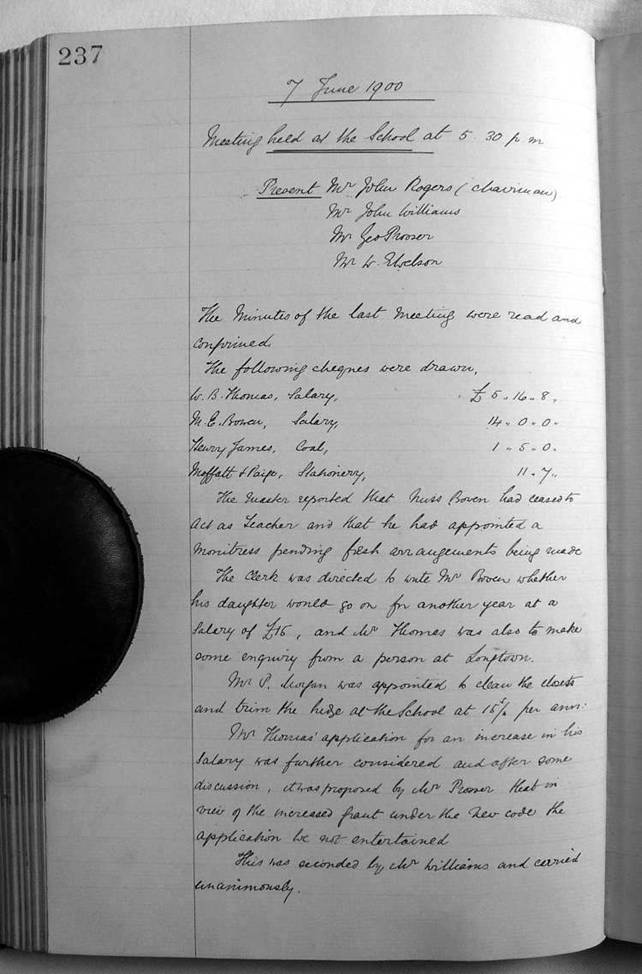 237
7 June 1900
Meeting held at the School at 5.30 p m
Present Mr John Rogers (chairman)
Mr John Williams
Mr Geo Prosser
Mr W.
The Minutes of the last Meeting were read and
confirmed
The following cheques were drawn,
W. B. Thomas, Salary, £ 5. 16. 8.
M. E. Bowen, Salary, 14. 0. 0.
Henry James, Coal, 1. 5. 0.
Moffatt & Paige, Stationery, 11. 7.
The Master reported that Miss Bowen had ceased to
act as Teacher and that he had appointed a
monitress pending fresh arrangements being made
The Clerk was directed to write Mr Bowen whether
his daughter would go on for another year at a
salary of £16, and Mr Thomas was also to make
some enquiry from a person at Longtown.
Mr P. Morgan was appointed to clean the closets
and trim the hedge at the School at 15/- per ann:
Mr Thomas' application for an increase in his
salary was further considered and after some
discussion, it was proposed by Mr Prosser that in
view of the increased grant under the new code the
application be not entertained
This was seconded by Mr Williams and carried
unanimously.